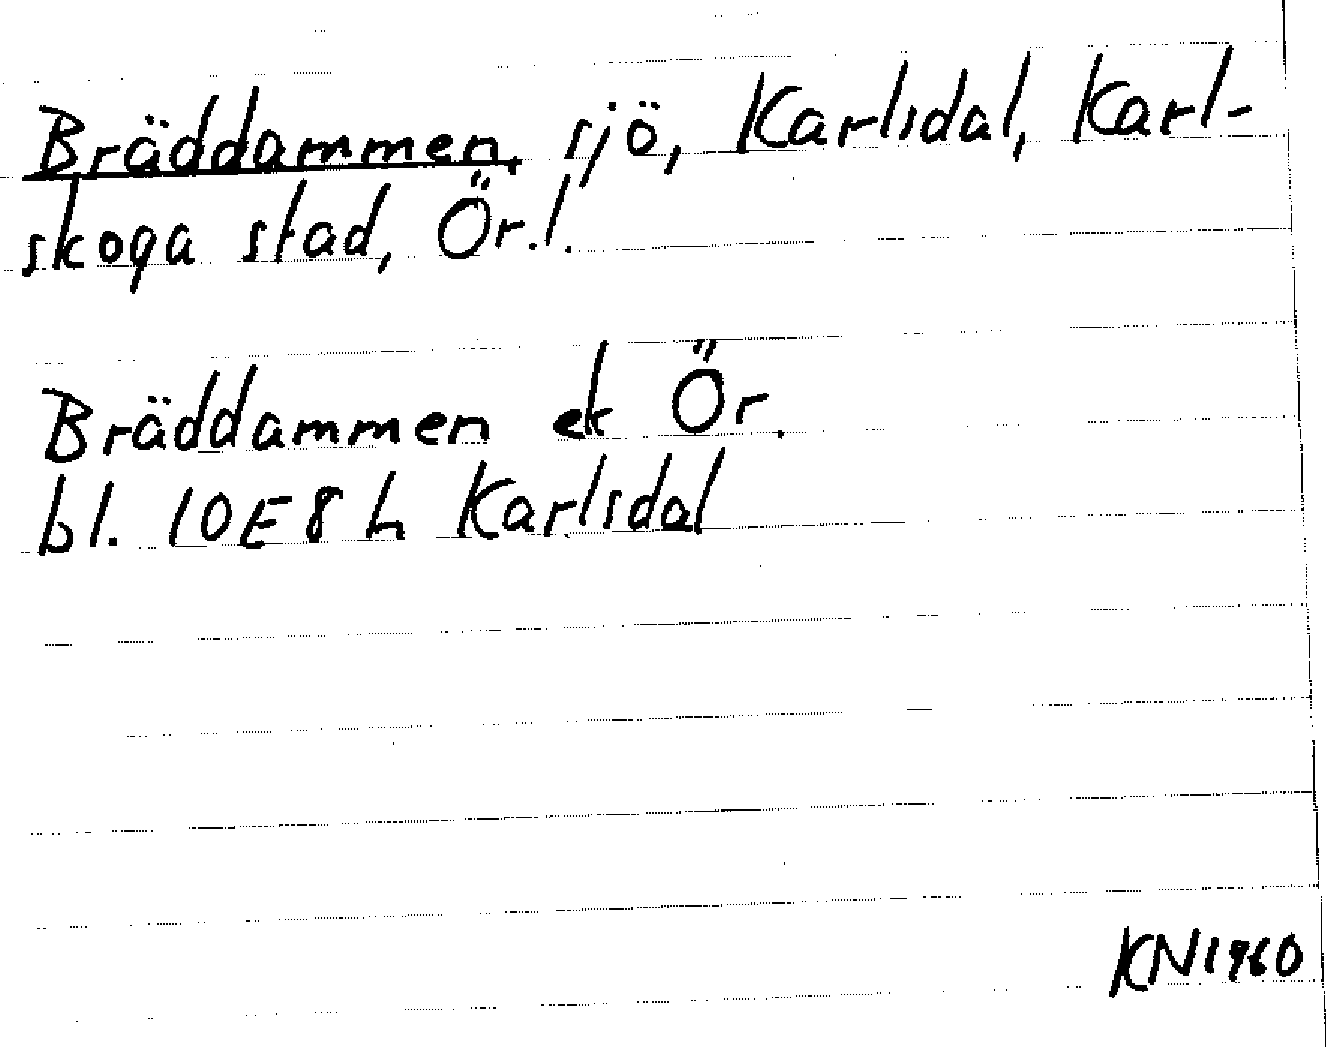 Bräddammen, sjö, Karlsdal, Karl-
skoga stad, Ör.l.
Bräddammen ek Ör.
bl. 10E8h Karlsdal
KN1960